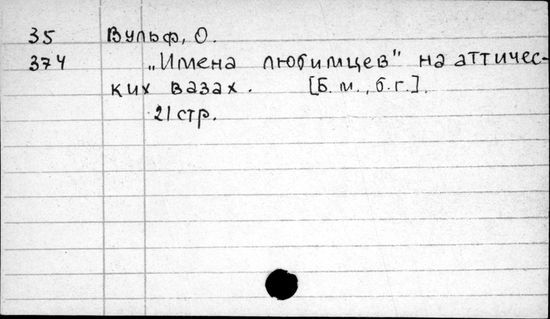 35 Вульф, О.
374 „Имена любимцев" на аттичес-
ких вазах. [Б. м., б. г.].
21 стр.